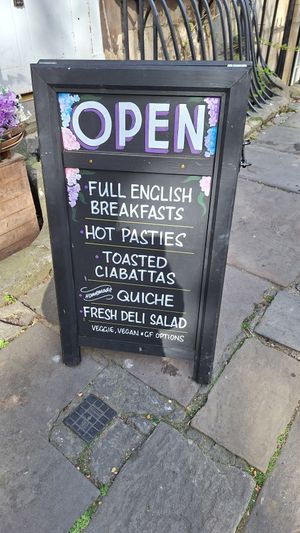 OPEN
• FULL ENGLISH
BREAKFASTS
• HOT PASTIES
• TOASTED
CIABATTAS
• Homemade QUICHE
• FRESH DELI SALAD
VEGGIE, VEGAN + GF OPTIONS